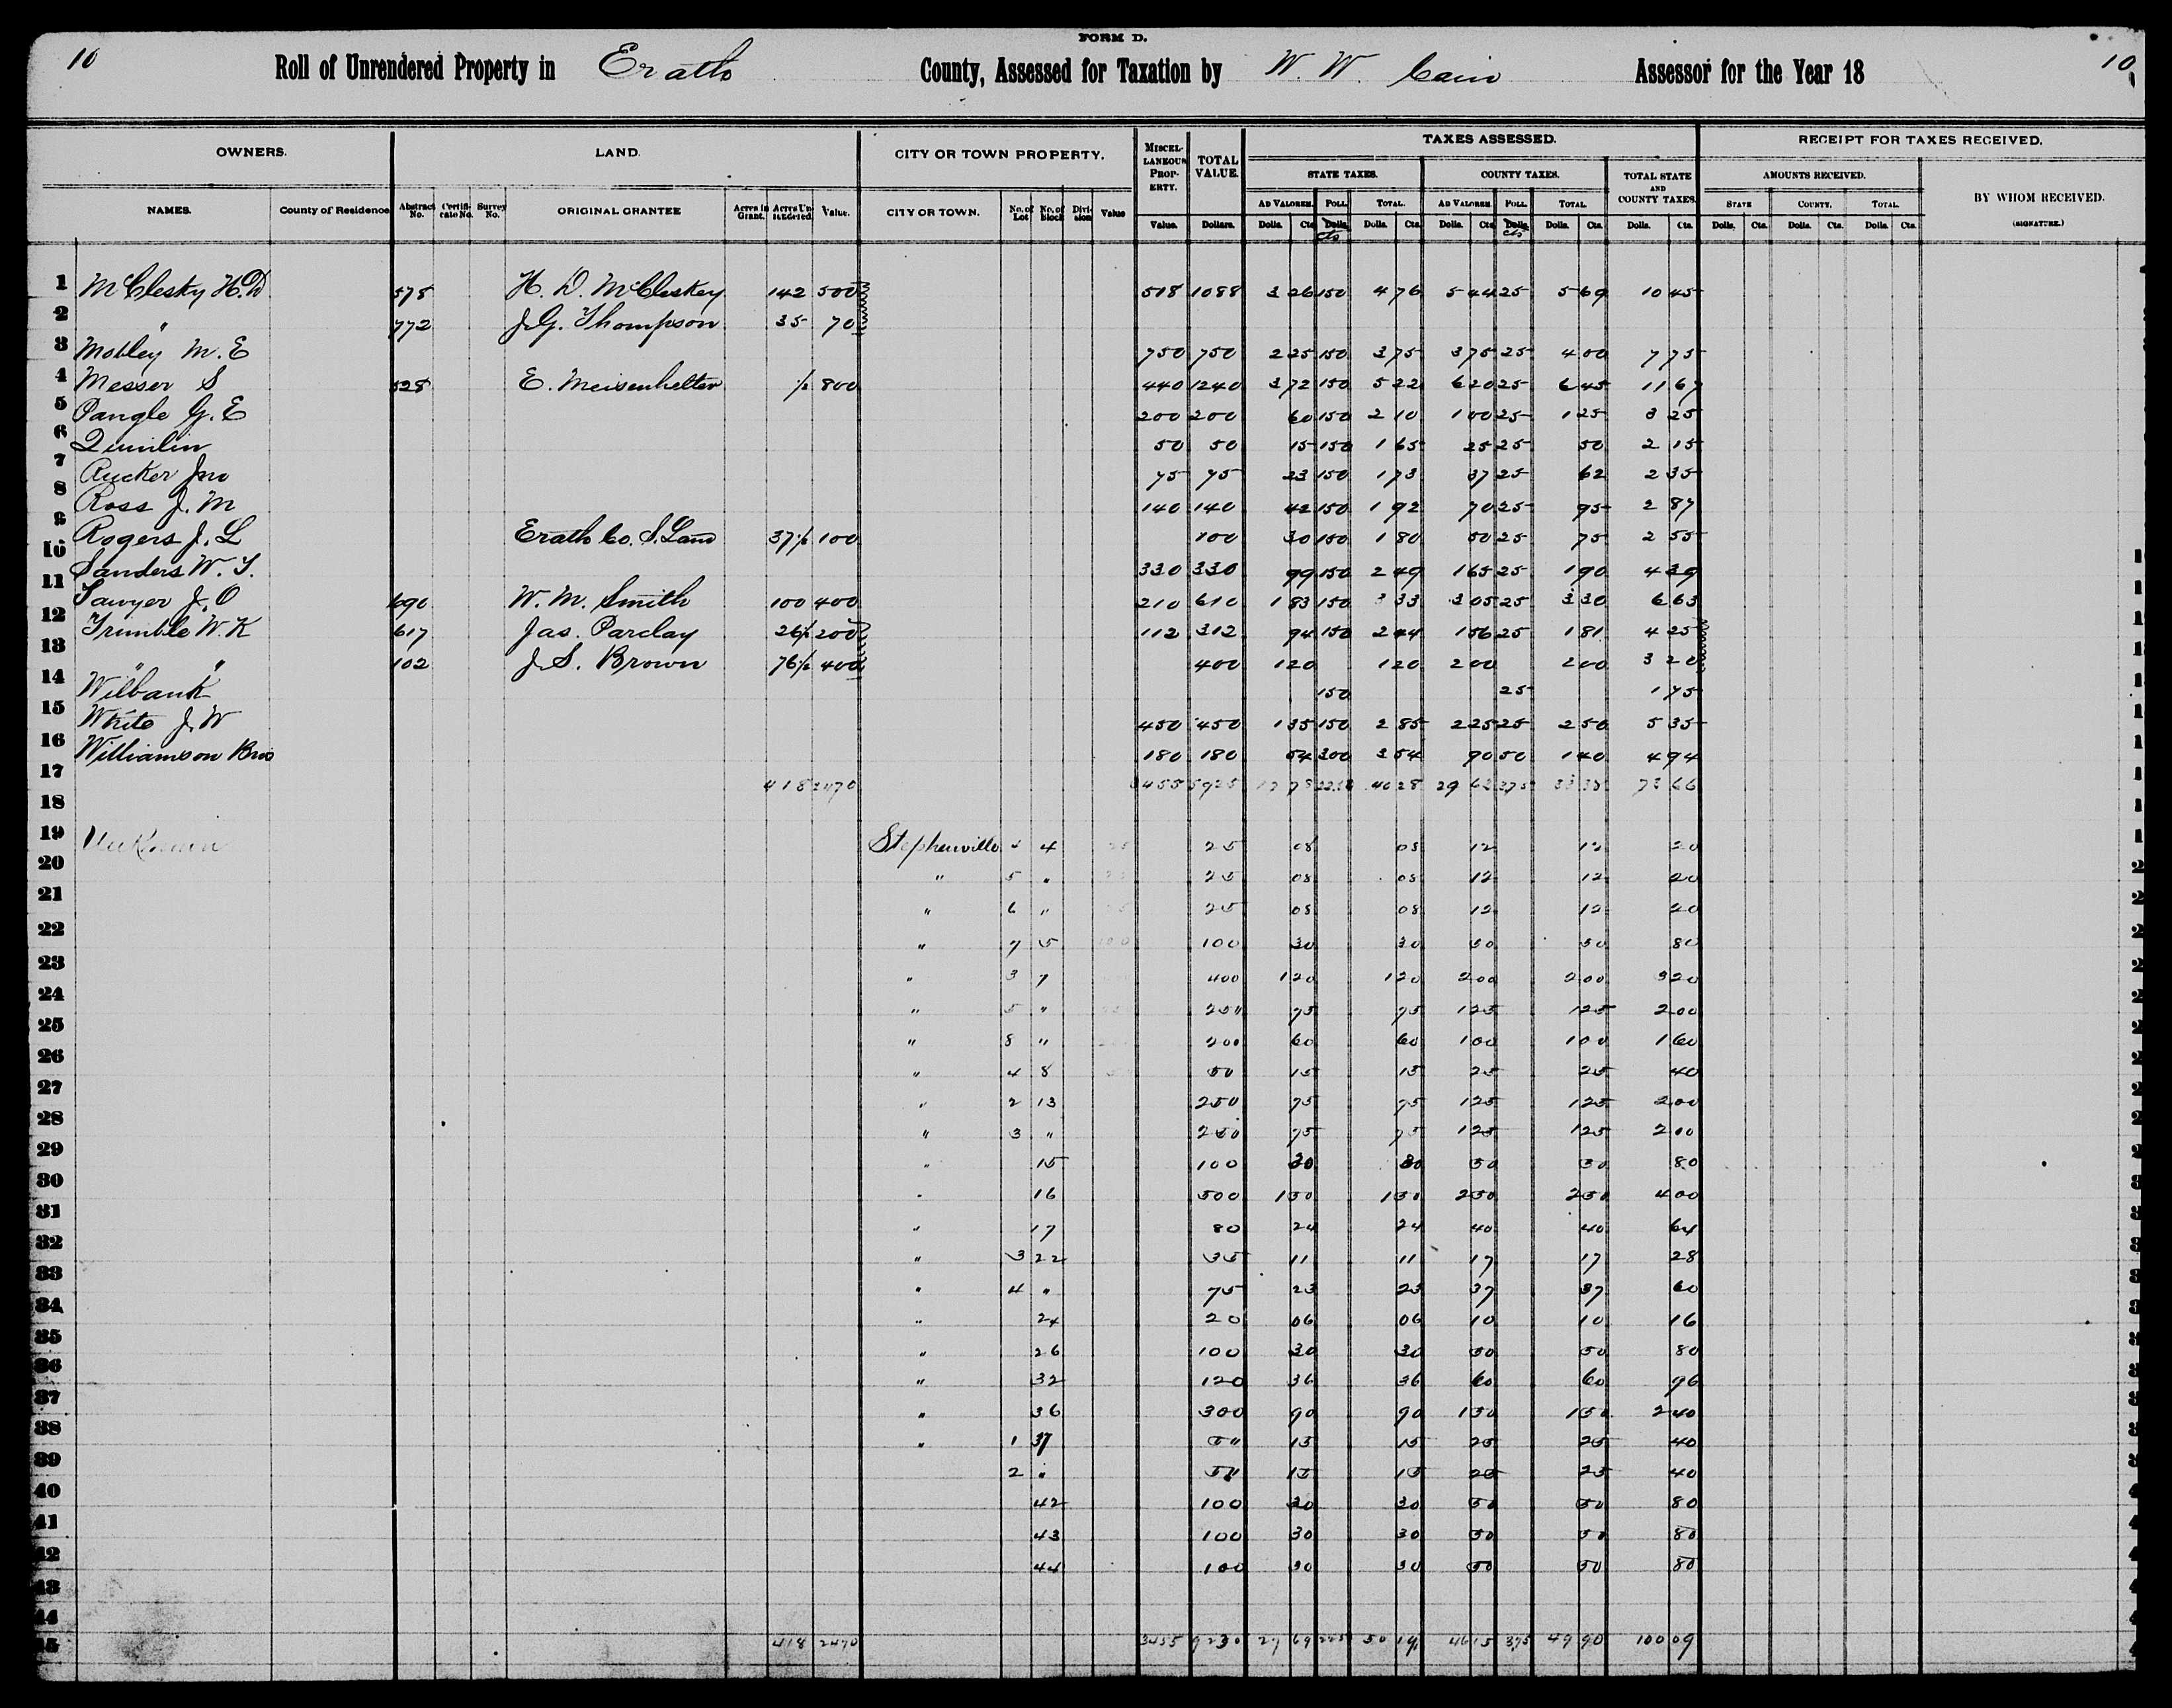 FORM D.
10 Roll of Unrendered Property in Erath County, Assessed for Taxation by W. W. Cain Assessor for the Year 18 10
OWNERS. LAND. CITY OR TOWN PROPERTY. MISCELLANEOUS PROPERTY. TOTAL VALUE. TAXES ASSESSED. RECEIPT FOR TAXES RECEIVED.
STATE TAXES. COUNTY TAXES. TOTAL STATE AND COUNTY TAXES. AMOUNTS RECEIVED. BY WHOM RECEIVED. (SIGNATURE.)
NAMES. County of Residence Abstract No. Certificate No. Survey No. ORIGINAL GRANTEE Acres in Grant. Acres Unrendered. Value. CITY OR TOWN. No. of Lot No. of block Division Value AD VALOREM. POLL. TOTAL. AD VALOREM. POLL. TOTAL STATE COUNTY. TOTAL
Value. Dollars. Dolls. Cts. Dolls. Cts Dolls. Cts. Dolls. Cts. Dolls. Cts Dolls. Cts. Dolls. Cts. Dolls. Cts. Dolls. Cts. Dolls. Cts.
1 McClesky H.D 578 H. D. McCleskey 142 500 518 1088 3 26 150 4 76 5 44 25 5 69 10 45
2 " 772 J.G. Thompson 35 70
3 Mobley M. E 750 750 2 25 150 3 75 3 75 25 4 00 7 75
4 Messer S 528 E. Meisenhelter 1/2 800 440 1240 3 72 150 5 22 6 20 25 6 45 11 67
5 Pangle G. E 200 200 60 150 2 10 1 00 25 1 25 3 25
6 Quinlin 50 50 15 150 1 65 25 25 50 2 15
7 Rucker Jno 75 75 23 150 1 73 37 25 62 2 35
8 Ross J. M 140 140 42 150 1 92 70 25 95 2 87
9 Rogers J. L Erath Co. S. Land 37 1/2 100 100 30 150 1 80 50 25 75 2 55
10 Sanders W. T. 330 330 99 150 2 49 1 65 25 1 90 4 39
11 Sawyer J. O 690 W. M. Smith 100 400 210 610 1 83 150 3 33 3 05 25 3 30 6 63
12 Trimble W. K 617 Jas. Parclay 26 1/2 200 112 312 94 150 2 44 1 56 25 1 81 4 25
13 " " 102 J. S. Brown 76 1/2 400 400 1 20 1 20 2 00 2 00 3 20
14 Wilbank 150 25 1 75
15 White J. W 450 450 1 35 150 2 85 2 25 25 2 50 5 35
16 Williamson Bros 180 180 54 300 3 54 90 50 1 40 4 94
17 418 2470 3455 5925 17 78 22.50 40 28 29 62 375 33 38 73 66
18
19 Unknown Stephenville 4 4 25 25 08 08 12 12 20
20 " 5 " 25 25 08 08 12 12 20
21 " 6 " 25 25 08 08 12 12 20
22 " 7 5 100 100 30 30 50 50 80
23 " 3 7 400 1 20 1 20 2 00 2 00 3 20
24 " 5 " 250 75 75 1 25 1 25 2 00
25 " 8 " 200 60 60 1 00 1 00 1 60
26 " 4 8 50 50 15 15 25 25 40
27 " 2 13 250 75 75 1 25 1 25 2 00
28 " 3 " 250 75 75 1 25 1 25 2 00
29 " 15 100 30 30 50 50 80
30 " 16 500 1 50 1 50 2 50 2 50 4 00
31 " 17 80 24 24 40 40 64
32 " 3 22 35 11 11 17 17 28
33 " 4 " 75 23 23 37 37 60
34 " 24 20 06 06 10 10 16
35 " 26 100 30 30 50 50 80
36 " 32 120 36 36 60 60 96
37 " 36 300 90 90 1 50 1 50 2 40
38 " 1 37 50 15 15 25 25 40
39 2 " 50 15 15 25 25 40
40 42 100 30 30 50 50 80
41 43 100 30 30 50 50 80
42 44 100 30 30 50 50 80
43
44
45 418 2470 3455 9230 27 69 225 50 19 46 15 375 49 90 100 09